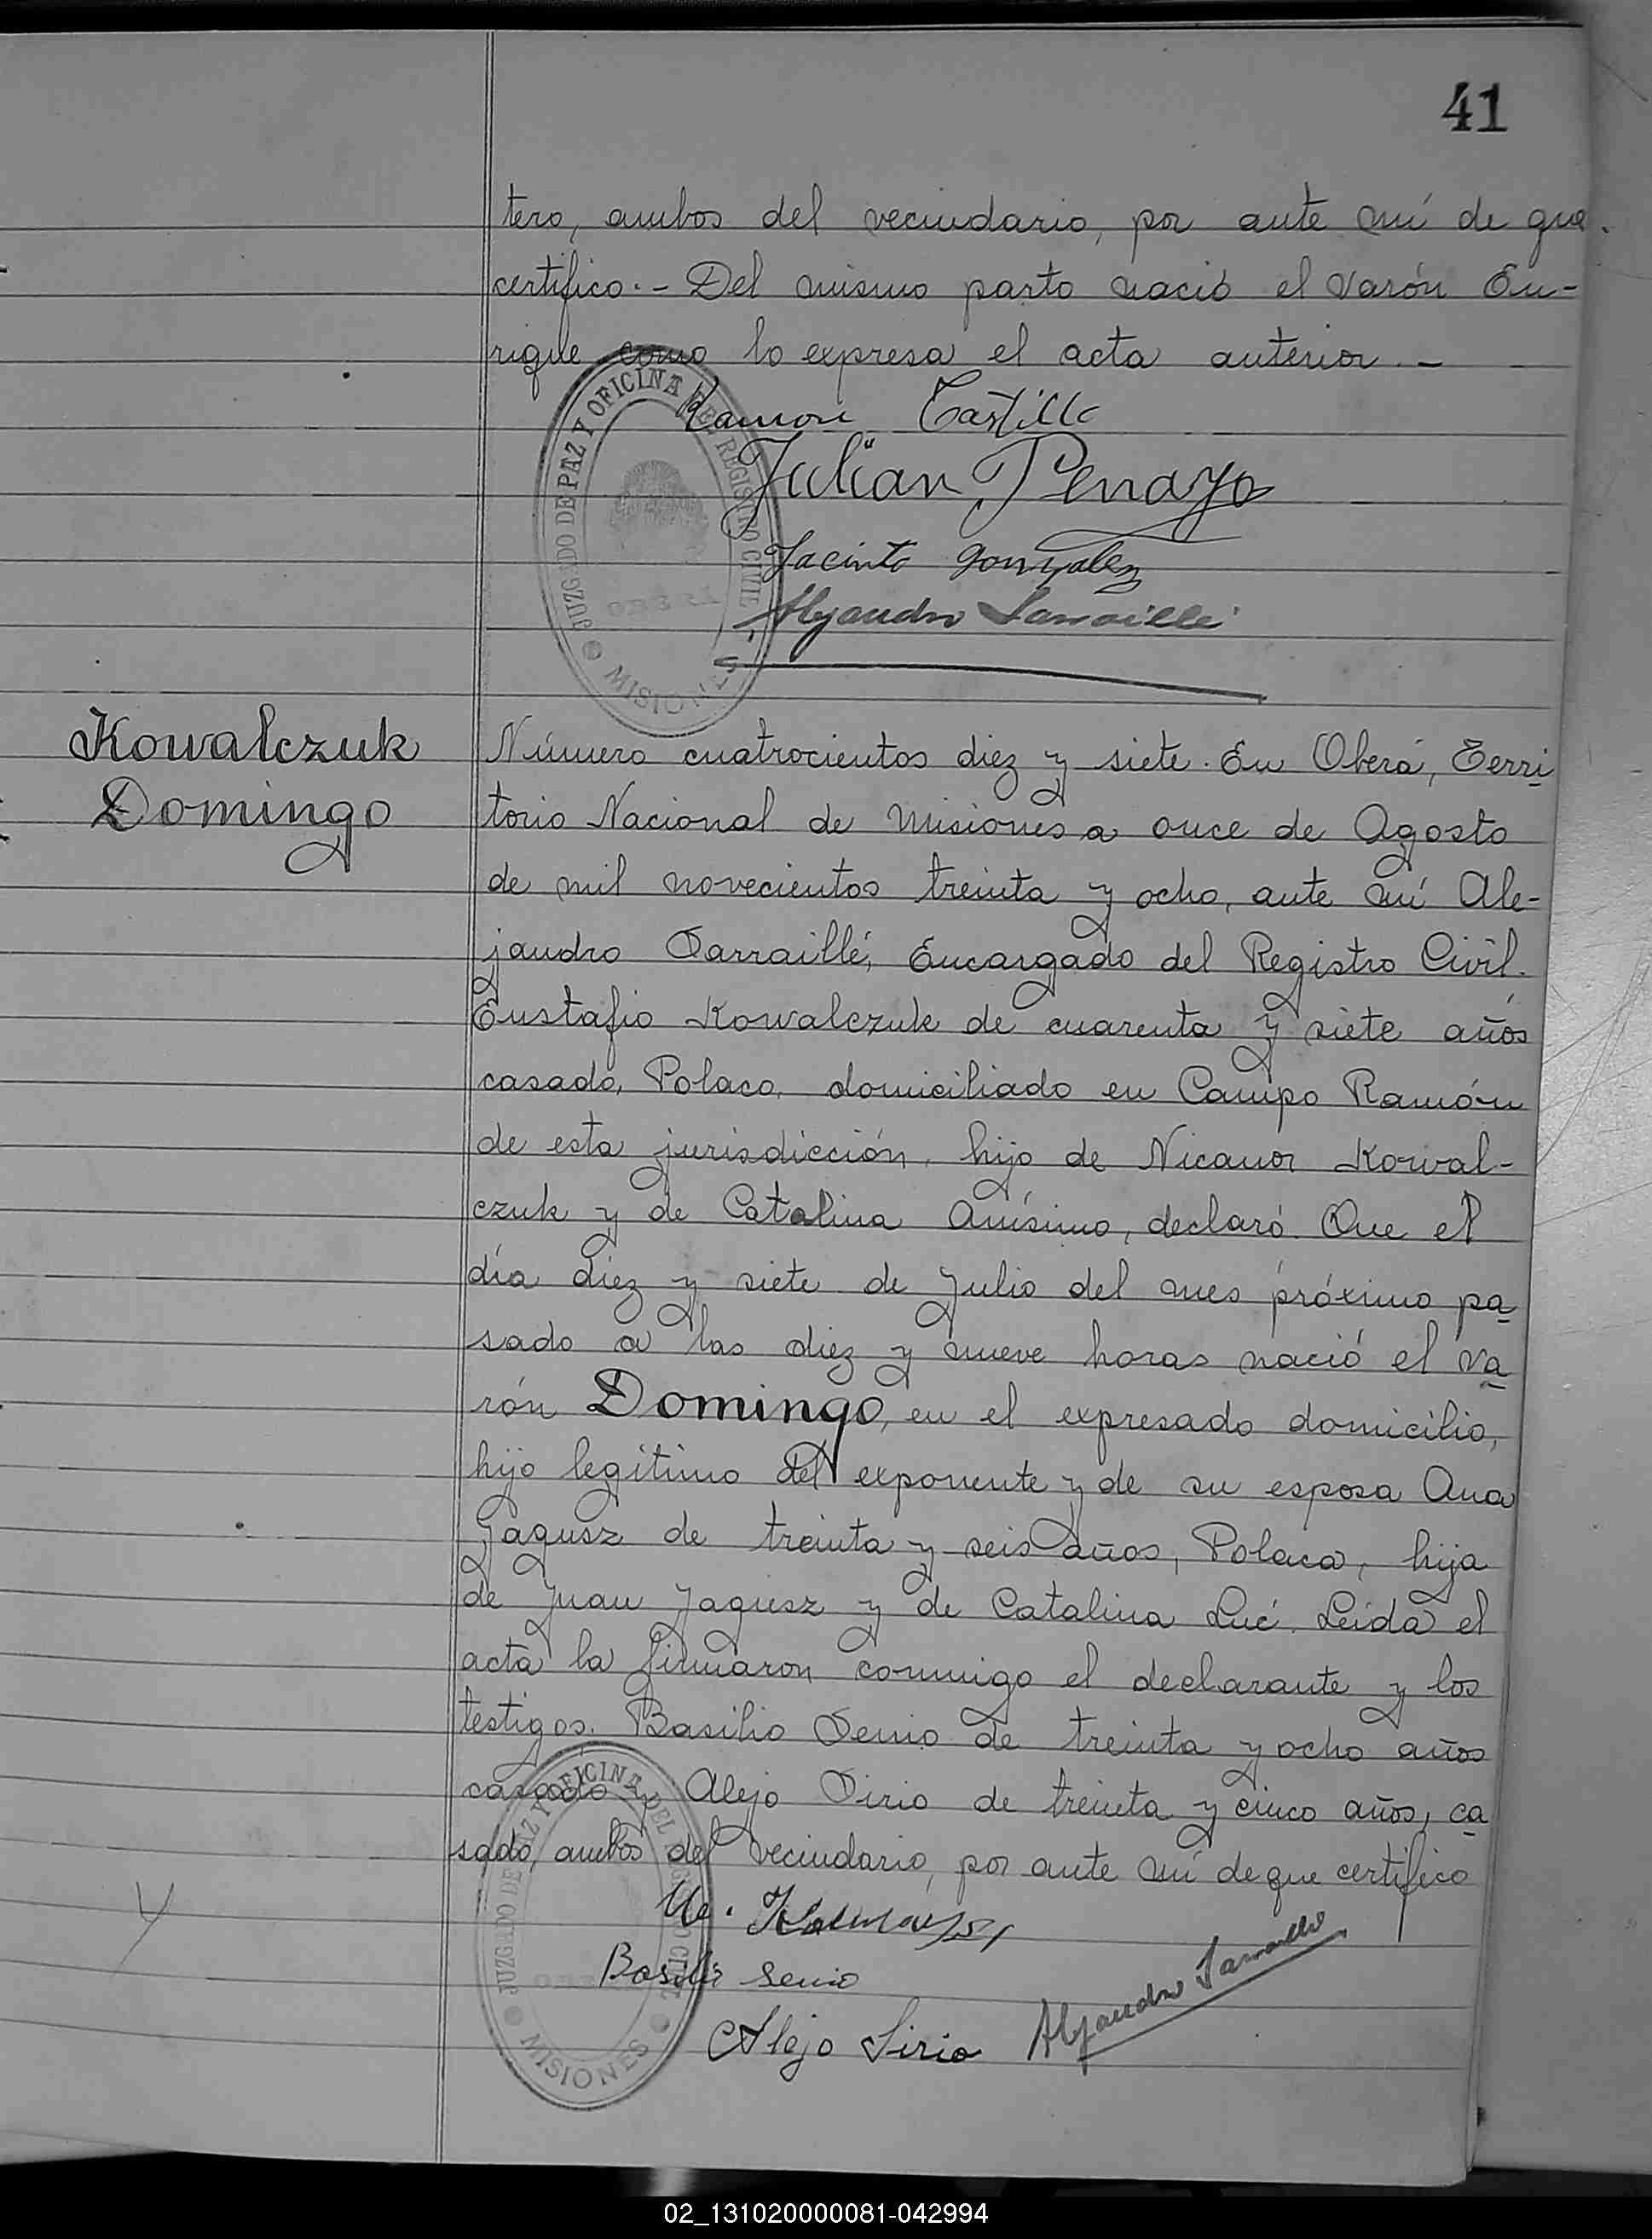 41
tero, ambos del vecindario, por ante mí de que
certifico.- Del mismo parto nació el varón En-
rique como lo expresa el acta anterior.-
Ramon Castillo
Julian Penayo
Jacinto Gonzalez
Alejandro Sarraillé
JUZGADO DE PAZ Y OFICINA DEL REGISTRO CIVIL
OBERA
MISIONES
Kowalczuk
Domingo
Número cuatrocientos diez y siete. En Oberá, Terri
torio Nacional de Misiones a once de Agosto
de mil novecientos treinta y ocho, ante mí Ale-
jandro Sarraillé, Encargado del Registro Civil.
Eustafio Kowalczuk de cuarenta y siete años
casado, Polaco, domiciliado en Campo Ramón
de esta jurisdicción, hijo de Nicanor Kowal-
czuk y de Catalina Anísimo, declaró. Que el
día diez y siete de Julio del mes próximo pa
sado a las diez y nueve horas nació el va
rón Domingo, en el expresado domicilio,
hijo legitimo del exponente y de su esposa Ana
Jagusz de treinta y seis años, Polaca, hija
de Juan Jagusz y de Catalina Luć. Leída el
acta la firmaron conmigo el declarante y los
testigos. Basilio Senio de treinta y ocho años
casado y Alejo Sirio de treinta y cinco años, ca
sado, ambos del vecindario, por ante mí de que certifico
Basilio Senio
Alejo Sirio
Alejandro Sarraillé
JUZGADO DE PAZ Y OFICINA DEL REGISTRO CIVIL
MISIONES
02_131020000081-042994